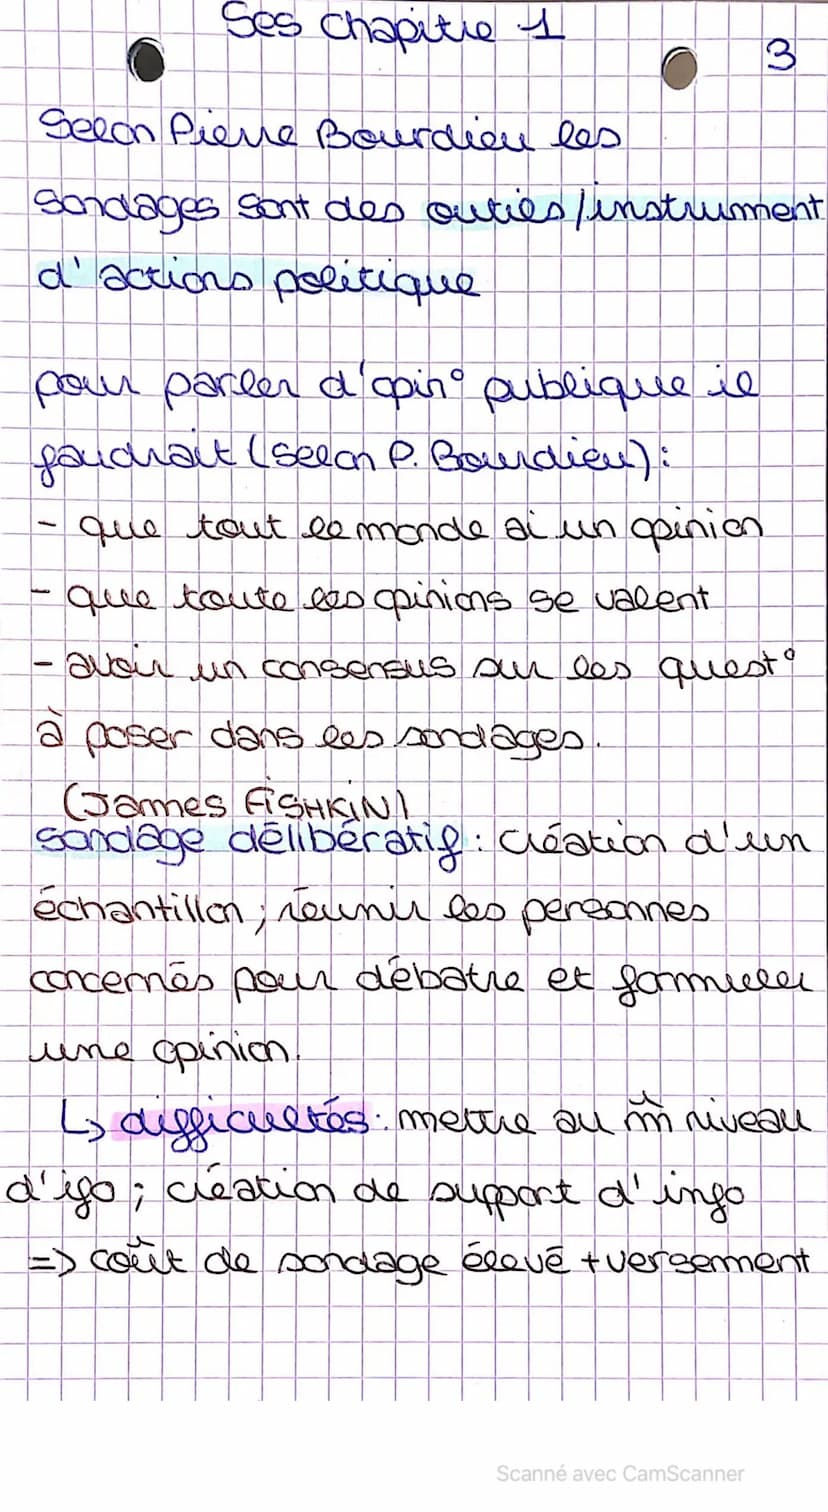 Ses chapitre 1
3
Selon Pierre Bourdieu les
sondages sont des outies/instrument
d'actions politique
pour parler d'opin° publique il
faudrait (selon P. Bourdieu) :
- que tout le monde ai un opinion
- que toute les opinions se valent
- avoir un consensus sur les quest°
à poser dans les sondages.
(James FISHKIN)
sondage délibératif : création d'un
échantillon ; réunir les personnes
concernés pour débatre et formuler
une opinion.
↳ difficultés : mettre au m̂ niveau
d'ifo ; création de support d'info
=> coût de sondage élevé + versement
Scanné avec CamScanner